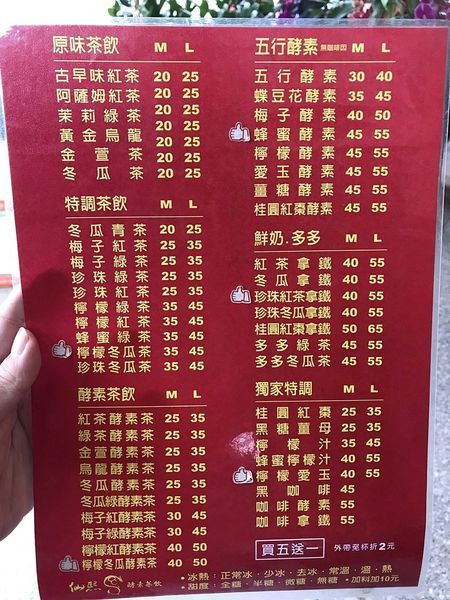 原味茶飲 M L
古早味紅茶 20 25
阿薩姆紅茶 20 25
茉莉綠茶 20 25
黃金烏龍 20 25
金萱茶 20 25
冬瓜茶 20 25
特調茶飲 M L
冬瓜青茶 20 25
梅子紅茶 25 35
梅子綠茶 25 35
珍珠綠茶 25 35
珍珠紅茶 25 35
檸檬綠茶 35 45
檸檬紅茶 35 45
蜂蜜綠茶 35 45
檸檬冬瓜茶 35 45
珍珠冬瓜茶 35 45
酵素茶飲 M L
紅茶酵素茶 25 35
綠茶酵素茶 25 35
金萱酵素茶 25 35
烏龍酵素茶 25 35
冬瓜酵素茶 25 35
冬瓜綠酵素茶 25 35
梅子紅酵素茶 30 45
梅子綠酵素茶 30 45
檸檬紅酵素茶 40 50
檸檬冬瓜酵素茶 40 50
五行酵素 無咖啡因 M L
五行酵素 30 40
蝶豆花酵素 35 45
梅子酵素 40 50
蜂蜜酵素 45 55
檸檬酵素 45 55
愛玉酵素 45 55
薑糖酵素 45 55
桂圓紅棗酵素 45 55
鮮奶.多多 M L
紅茶拿鐵 40 55
冬瓜拿鐵 40 55
珍珠紅茶拿鐵 40 55
珍珠冬瓜拿鐵 40 55
桂圓紅棗拿鐵 50 65
多多綠茶 40 55
多多冬瓜茶 40 55
獨家特調 M L
桂圓紅棗 25 35
黑糖薑母 25 35
檸檬汁 35 45
蜂蜜檸檬汁 40 55
檸檬愛玉 40 55
黑咖啡 45
咖啡酵素 55
咖啡拿鐵 55
買五送一 外帶免杯折2元
酵素茶飲 •冰熱:正常冰、少冰、去冰、常溫、溫、熱
•甜度:全糖、半糖、微糖、無糖 •加料加10元